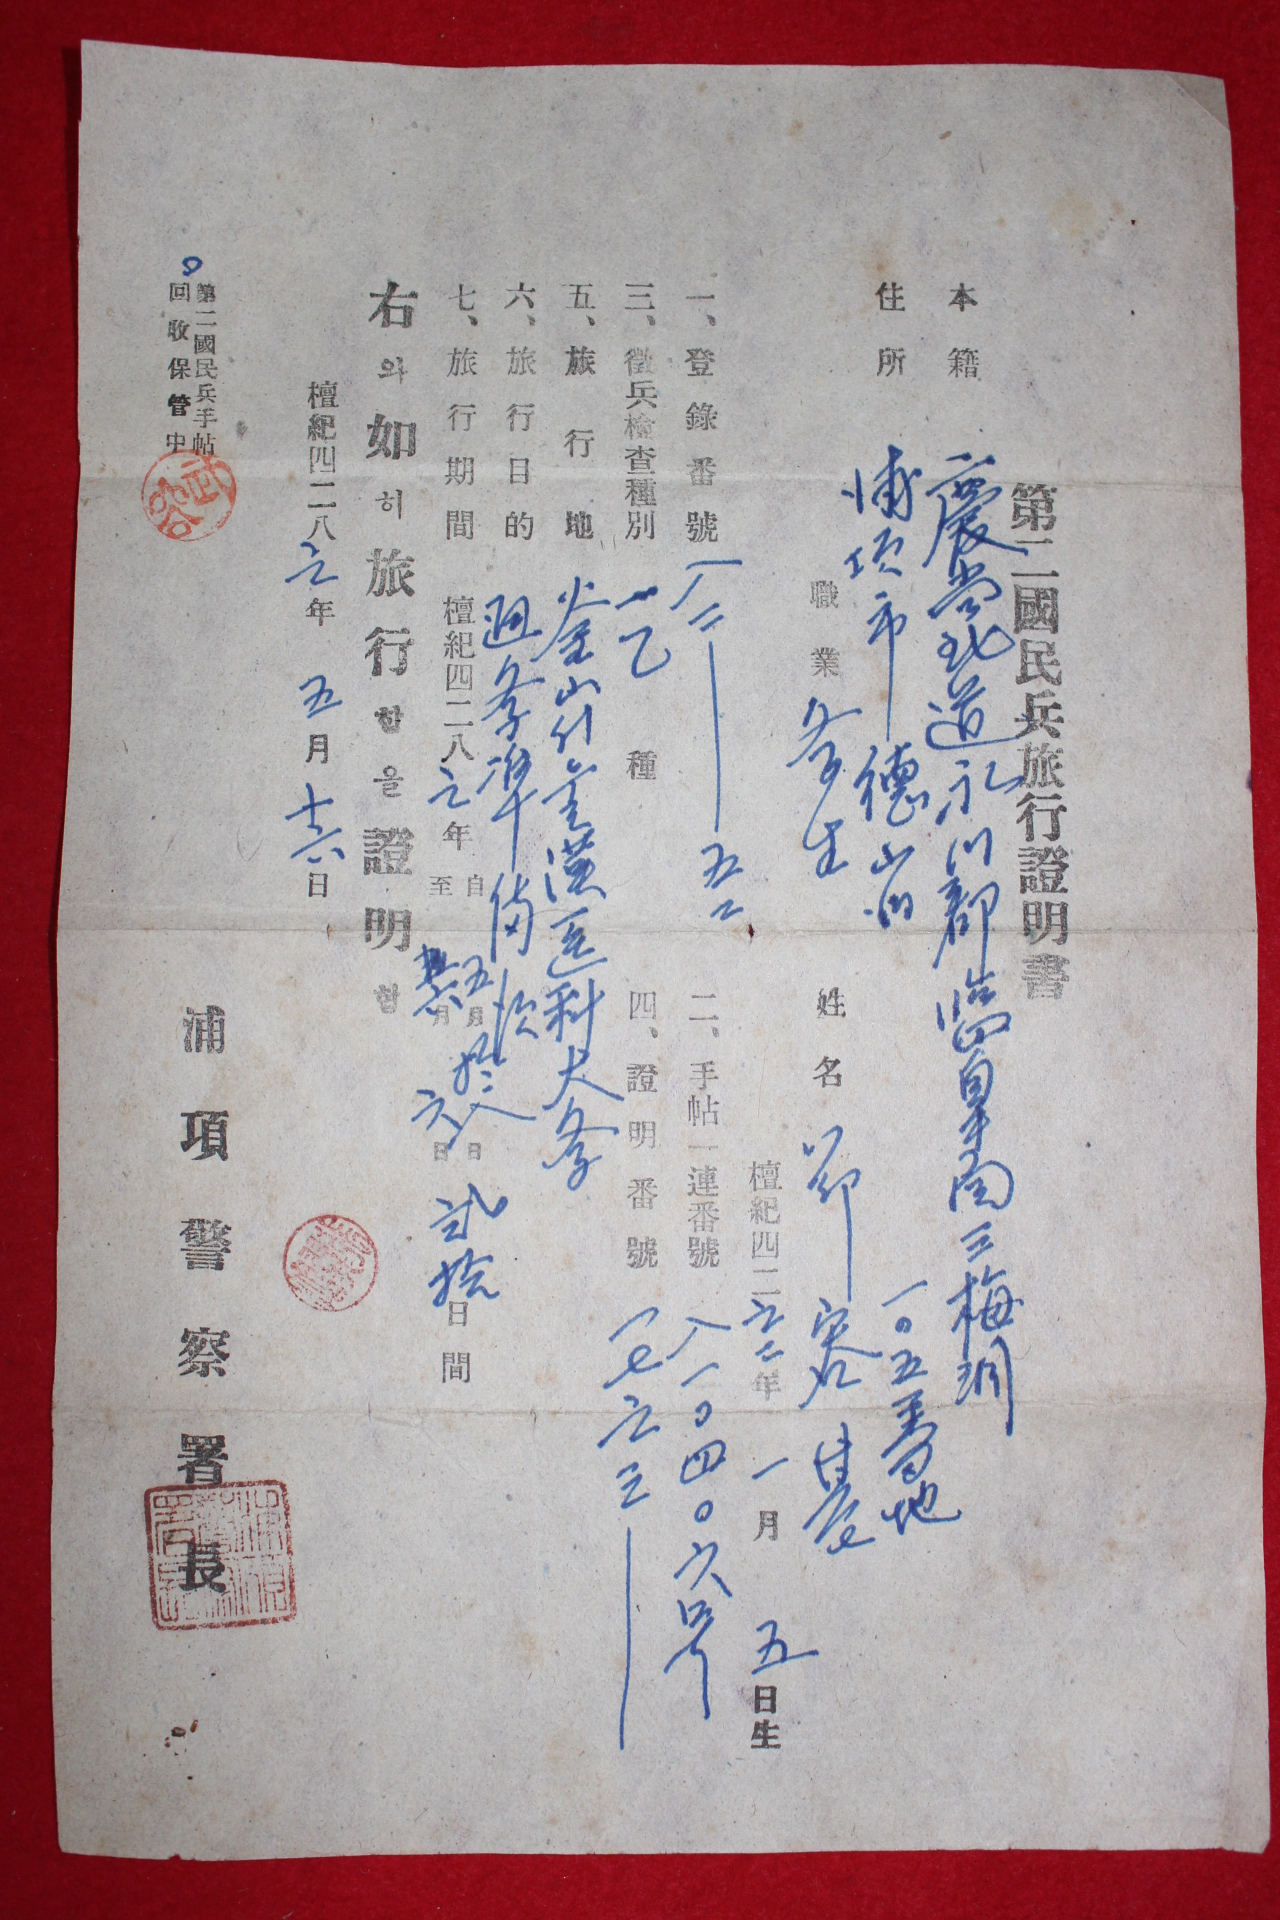 第二國民兵旅行證明書
本籍 慶尙北道永川郡臨皐面三梅洞
一〇五番地
住所 浦項市 德山洞
職業 學生 姓名 鄭容
檀紀四二六二年 一月 五日生
一、登錄番號 八二 五二
二、手帖一連番號 八一〇四〇六号
三、徵兵檢查種別 一乙 種
四、證明番號 一七六三
五、旅行地 釜山 漢医科大學
六、旅行目的 學準備次
七、旅行期間 檀紀四二八八年 自 五月 拾八日
至 六月 六日 貳拾日間
右와如히旅行함을證明함
檀紀四二八八年 五月 十六日
浦項警察署長
第二國民兵手帖
回收保管中